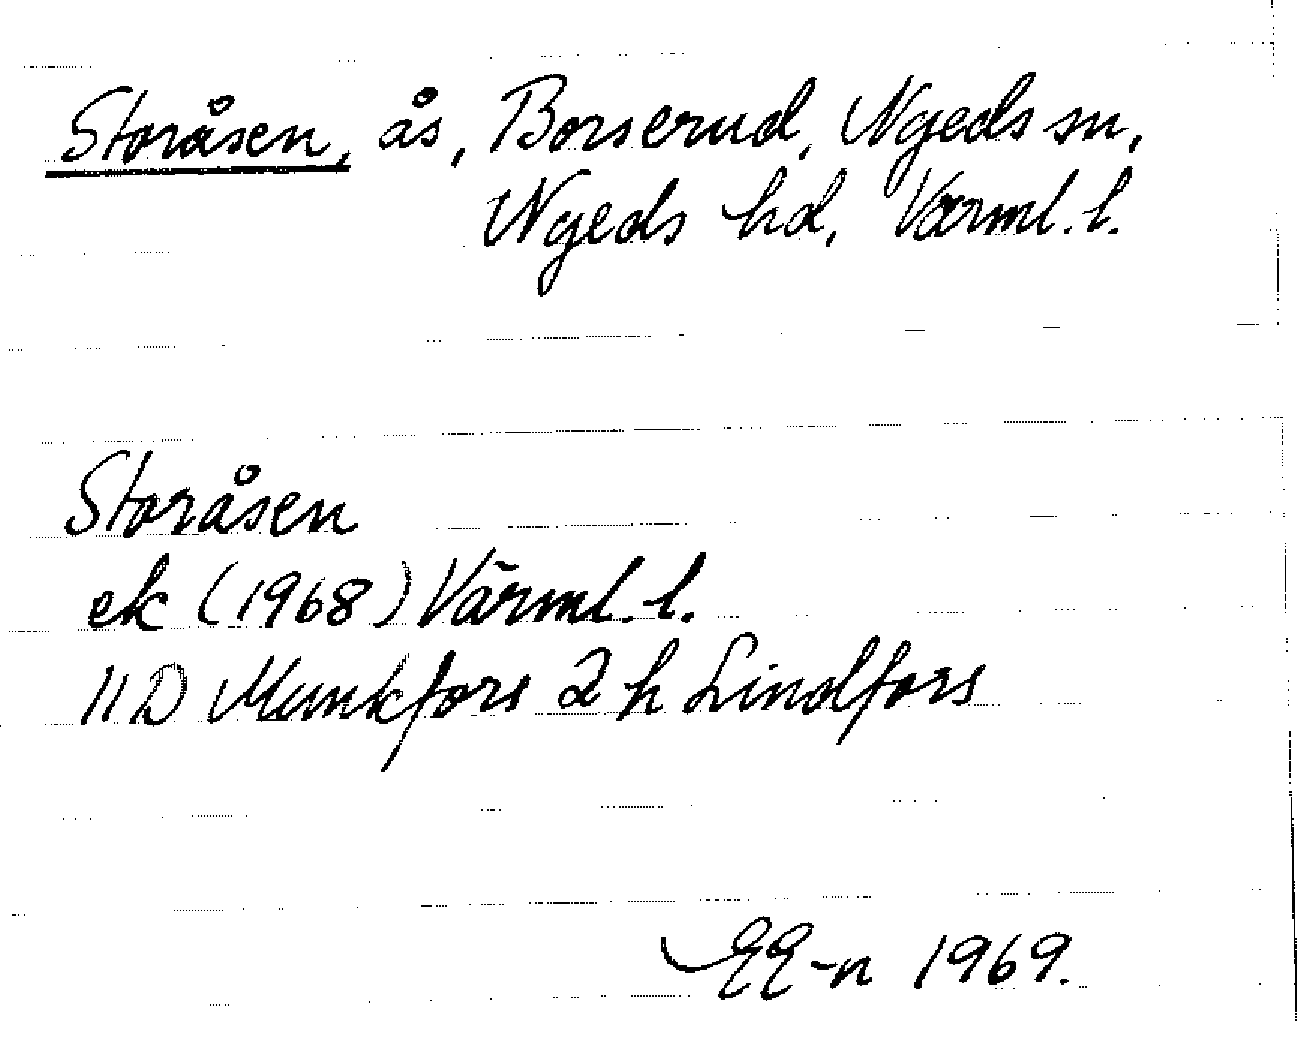 Storåsen, ås, Borserud, Nyeds sn,
Nyeds hd, Värml. l.
Storåsen
ek (1968) Värml. l.
11D Munkfors 2 h Lindfors
EE-n 1969.